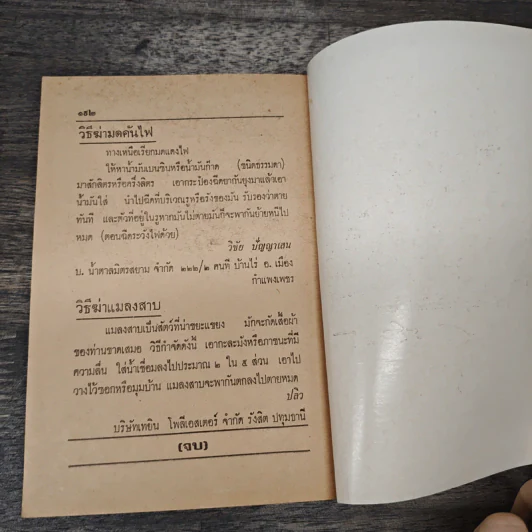 ๑๕๒
วิธีฆ่ามดคันไฟ
ทางเหนือเรียกมดแดงไฟ
ให้หาน้ำมันเบนซินหรือน้ำมันก๊าด (ชนิดธรรมดา)
มาสักลิตรหรือครึ่งลิตร เอากระป๋องฉีดยากันยุงมาแล้วเอา
น้ำมันใส่ นำไปฉีดที่บริเวณรูหรือรังของมัน รับรองว่าตาย
ทันที และตัวที่อยู่ในรูหากมันไม่ตายมันก็จะพากันย้ายหนีไป
หมด (ตอนฉีดระวังไฟด้วย)
วิชัย ปัญญาเสน
บ. น้ำตาลมิตรสยาม จำกัด ๒๒๒/๒ คนที บ้านไร่ อ. เมือง
กำแพงเพชร
วิธีฆ่าแมลงสาบ
แมลงสาบเป็นสัตว์ที่น่าขยะแขยง มักจะกัดเสื้อผ้า
ของท่านขาดเสมอ วิธีกำจัดดังนี้ เอากะละมังหรือภาชนะที่มี
ความลื่น ใส่น้ำเชื่อมลงไปประมาณ ๒ ใน ๕ ส่วน เอาไป
วางไว้ซอกหรือมุมบ้าน แมลงสาบจะพากันตกลงไปตายหมด
ปลิว
บริษัทเทยิน โพลีเอสเตอร์ จำกัด รังสิต ปทุมธานี
(จบ)